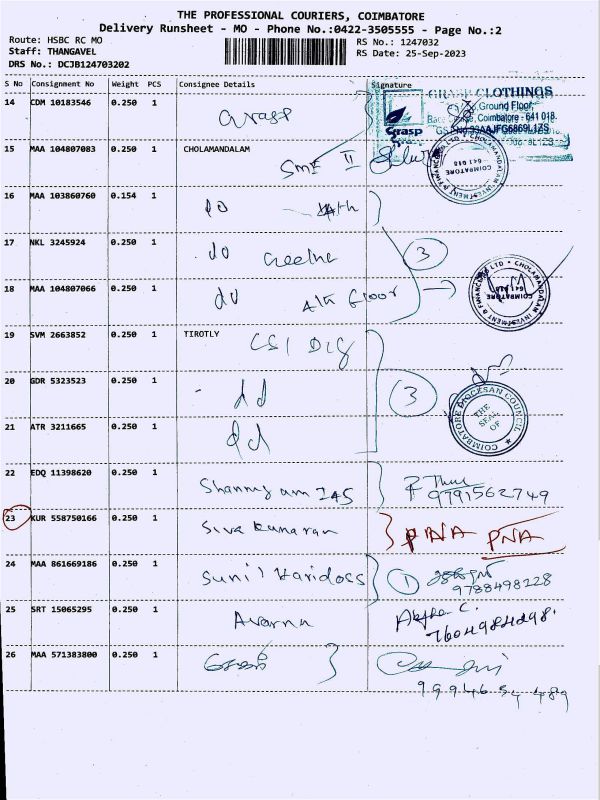 THE PROFESSIONAL COURIERS, COIMBATORE
Delivery Runsheet - MO - Phone No.:0422-3505555 - Page No.:2
Route: HSBC RC MO
RS No.: 1247032
Staff: THANGAVEL
RS Date: 25-Sep-2023
DRS No.: DCJB124703202
S No Consignment No Weight PCS Consignee Details Signature
14 CDM 10183546 0.250 1 Grasp
GRASP CLOTHINGS
Ground Floor,
Coimbatore - 641 018.
Grasp
15 MAA 104807083 0.250 1 CHOLAMANDALAM
SME II
CHOLAMANDALAM INVESTMENT & FINANCE CO LTD
COIMBATORE
641 018
16 MAA 103860760 0.154 1 do
17 NKL 3245924 0.250 1 do Geetha 3
18 MAA 104807066 0.250 1 do 4th floor
CHOLAMANDALAM INVESTMENT & FINANCE CO LTD
COIMBATORE
641 018
19 SVM 2663852 0.250 1 TIROTLY
CSI
20 GDR 5323523 0.250 1 do 3
COIMBATORE DIOCESAN COUNCIL
THE SEAL OF
21 ATR 3211665 0.250 1 do
22 EDQ 11398620 0.250 1 Shanmugam IAS
9791562749
23 KUR 558750166 0.250 1 Siva Kumaran PNA PNA
24 MAA 861669186 0.250 1 Sunil Karidoss 1
9788498128
25 SRT 15065295 0.250 1 Avarna
7604984298.
26 MAA 571383800 0.250 1